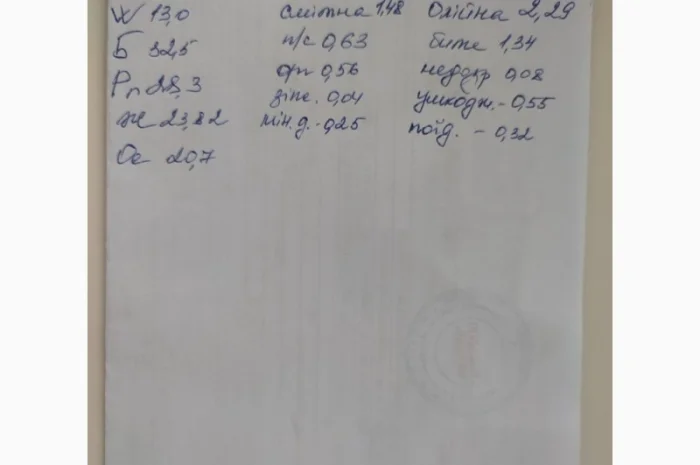 W 13,0 смітна 1,48 Олійна 2,29
Б 32,5 п/с 0,63 бите 1,34
Рп 28,3 ор 0,56 недозр 0,08
Ж 23,82 зіпс. 0,04 ушкодж. - 0,55
Ос 20,7 мін.д. - 0,25 поїд. - 0,32